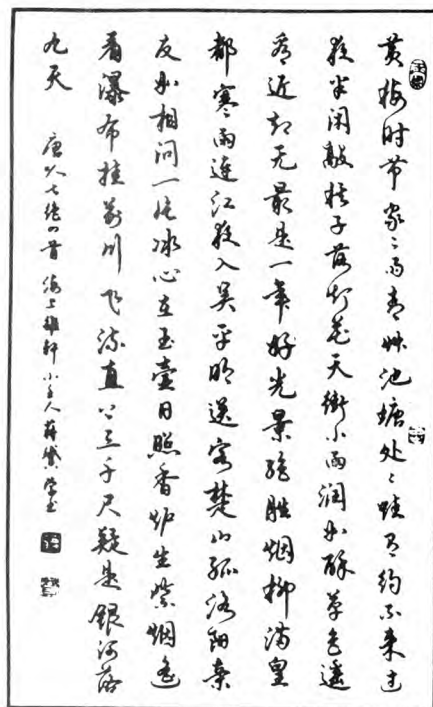 黄梅时节家〻雨青草池塘处〻蛙有约不来过
夜半闲敲棋子落灯花天街小雨润如酥草色遥
看近却无最是一年好光景绝胜烟柳满皇
都寒雨连江夜入吴平明送客楚山孤洛阳亲
友如相问一片冰心在玉壶日照香炉生紫烟遥
看瀑布挂前川飞流直下三千尺疑是银河落
九天 唐人七绝四首 海上 轩小主人蒋